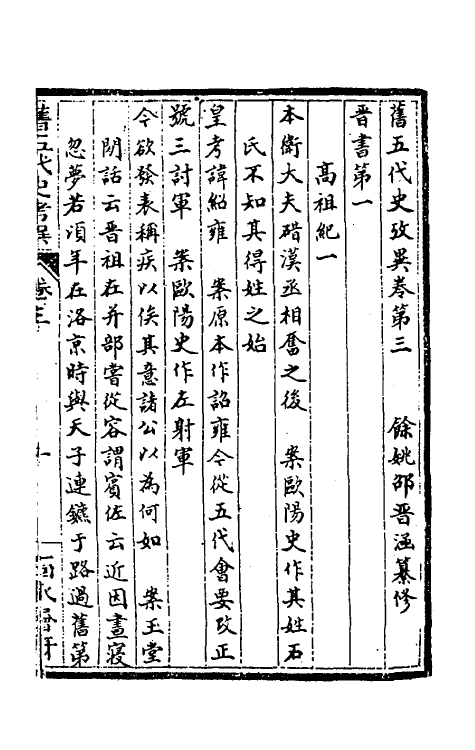 舊五代史攷異卷第三　餘姚邵晉涵纂修
晉書第一
高祖紀一
本衛大夫碏漢丞相奮之後　案歐陽史作其姓石
氏不知其得姓之始
皇考諱紹雍　案原本作詔雍今從五代會要攷正
號三討軍　案歐陽史作左射軍
今欲發表稱疾以俟其意諸公以為何如　案玉堂
閒話云晉祖在并部嘗從容謂賓佐云近因晝寢
忽夢若項年在洛京時與天子連鑣于路過舊第
舊五代史考異　卷三